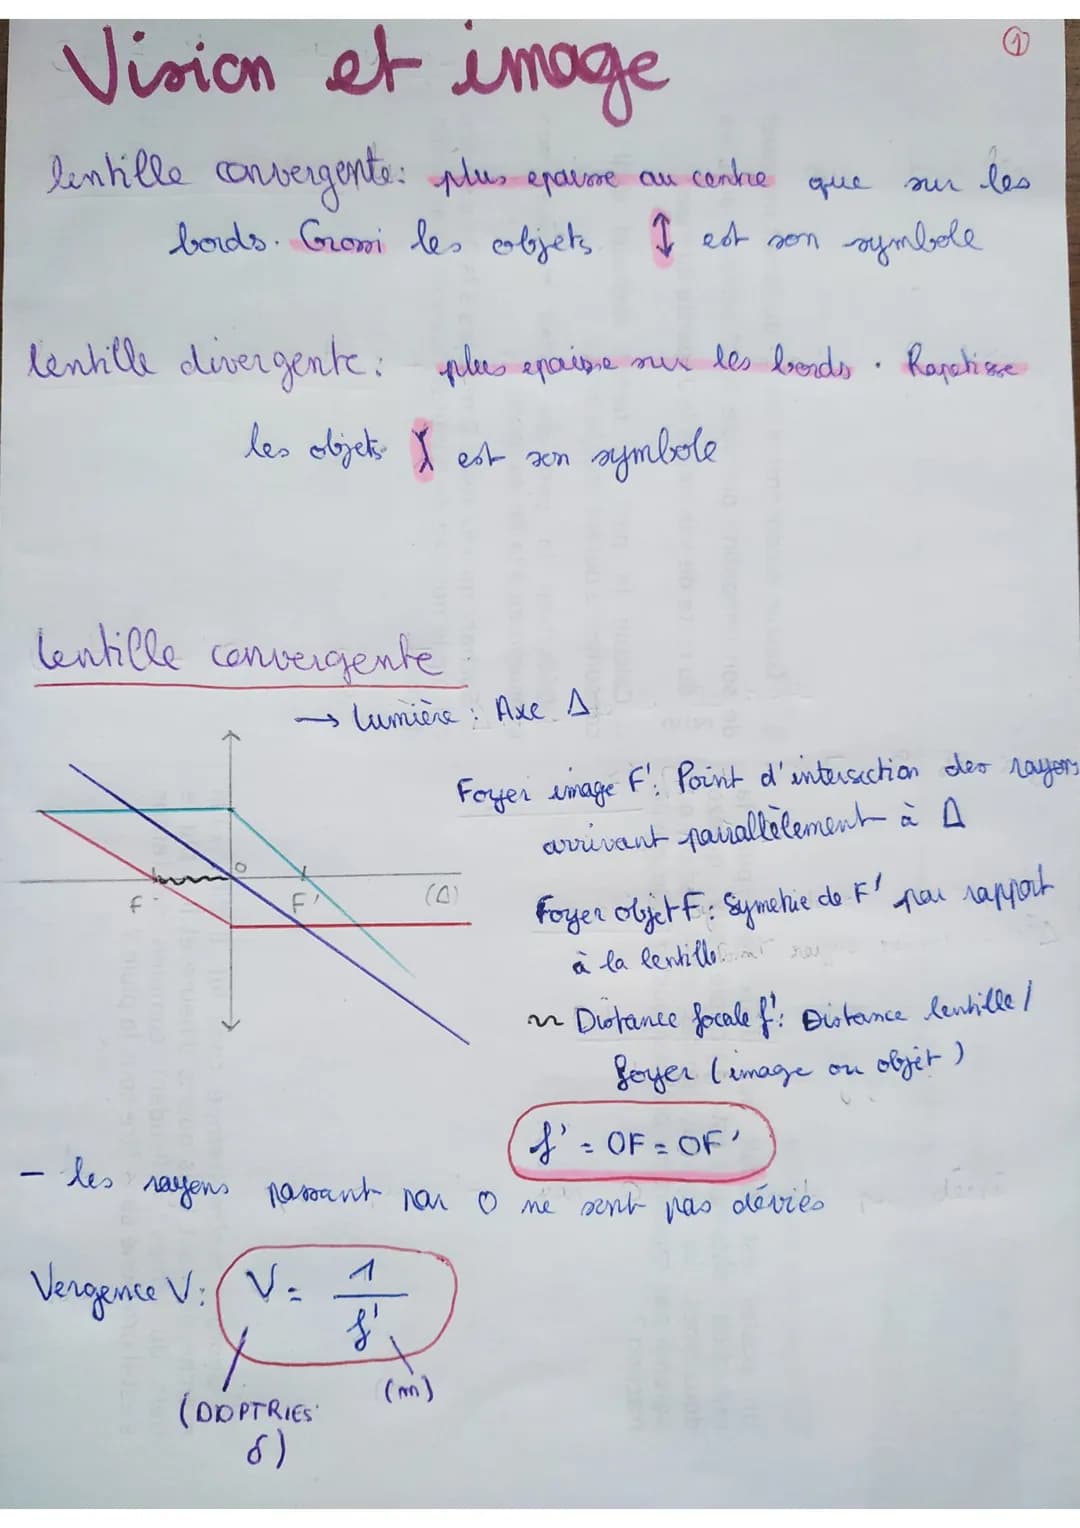 Vision et image
1
lentille convergente: plus epaisse au centre que sur les
bords. Grossi les objets ↕ est son symbole
lentille divergente: plus epaisse sur les bords. Rapetisse
les objets est son symbole
lentille convergente
→ Lumière : Axe Δ
Foyer image F': Point d'intersection des rayons
arrivant parallèlement à Δ
O
F
F'
(Δ)
Foyer objet F: Symetrie de F' par rapport
à la lentille
~ Distance focale f': Distance lentille /
foyer (image ou objet)
f' = OF = OF'
- les rayons passant par O ne sont pas déviés
Vergence V: V = 1
f'
(m)
(DIOPTRIES
δ)